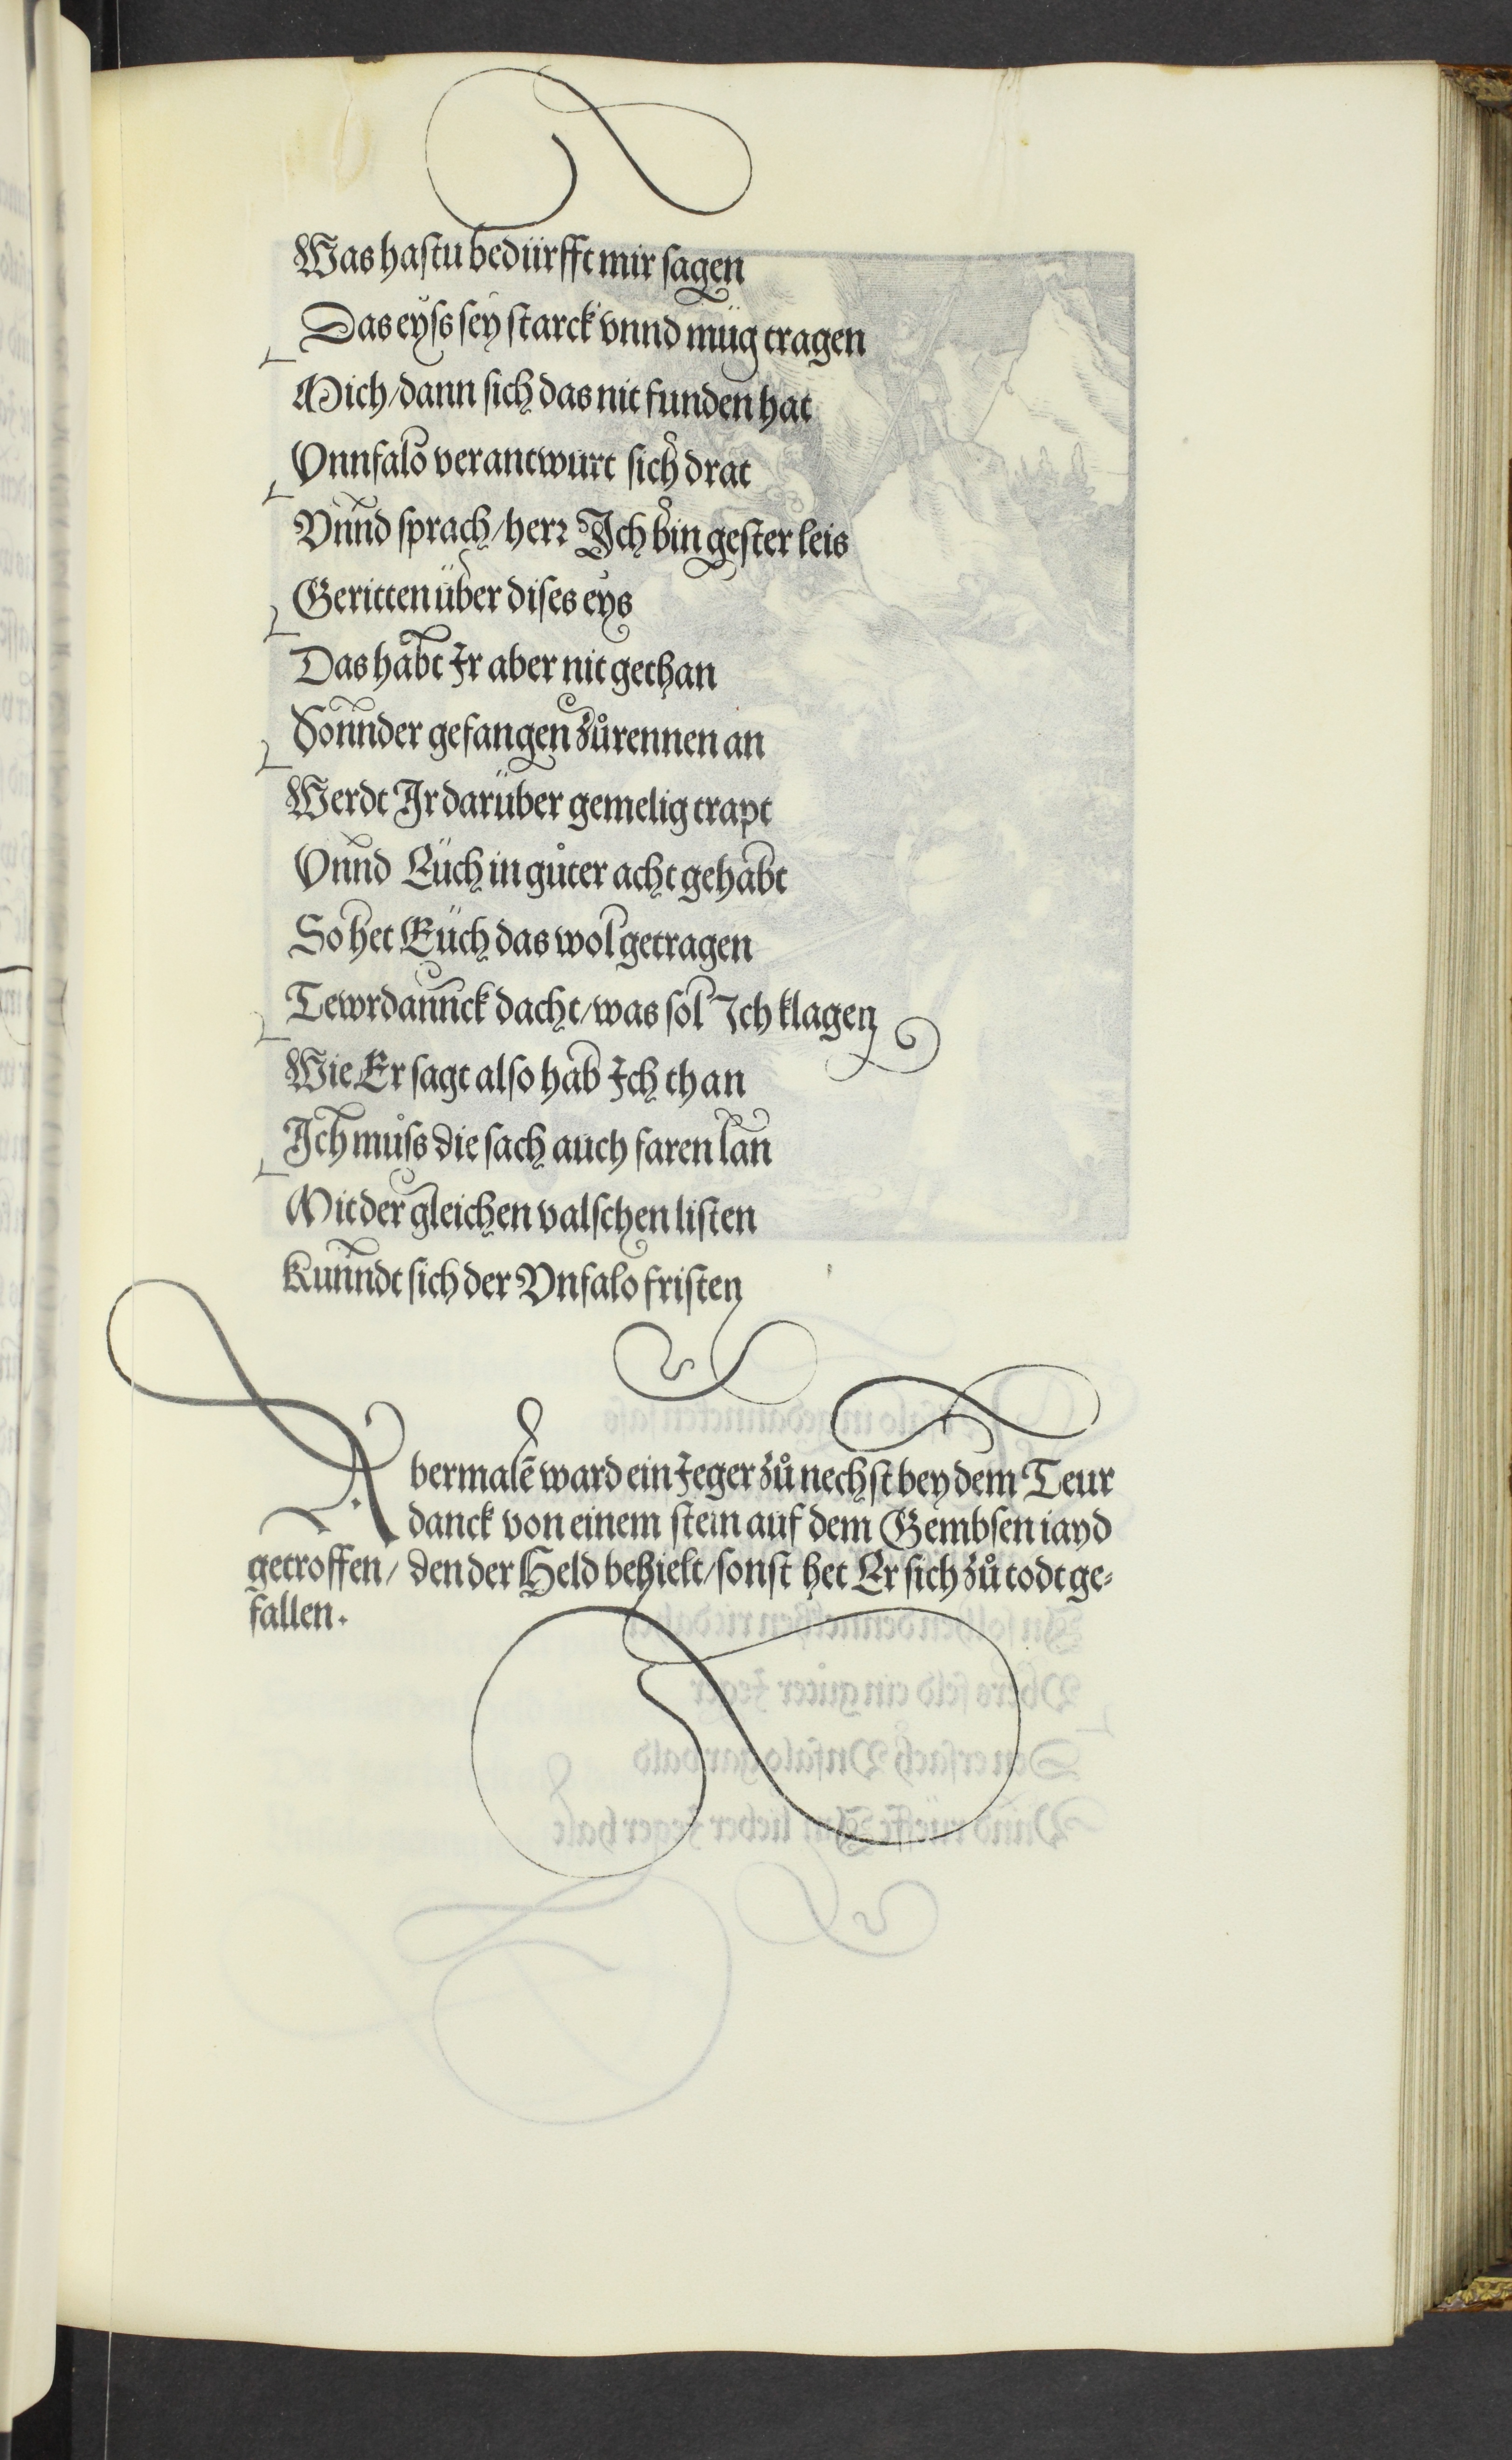 Was hastu bedürfft mir sagen
Das eyss sey starck vnnd müg tragen
Mich / dann sich das nit funden hat
Vnnfalo verantwurt sich drat
Vnnd sprach / herr Ich bin gester leis
Geritten über dises eys
Das habt Ir aber nit gethan
Sonnder gefangen zůrennen an
Werdt Ir darüber gemelig trapt
Vnnd Eüch in gůter acht gehabt
So het Eüch das wol getragen
Tewrdannck dacht / was sol Ich klagen
Wie Er sagt also hab Ich than
Ich můss die sach auch faren lan
Mit der gleichen valschen listen
Kunndt sich der Vnfalo fristen
Abermalē ward ein Jeger zů nechst bey dem Teur
danck von einem stein auf dem Gembsen iayd
getroffen / den der Held behielt / sonst het Er sich zů todt ge-
fallen.